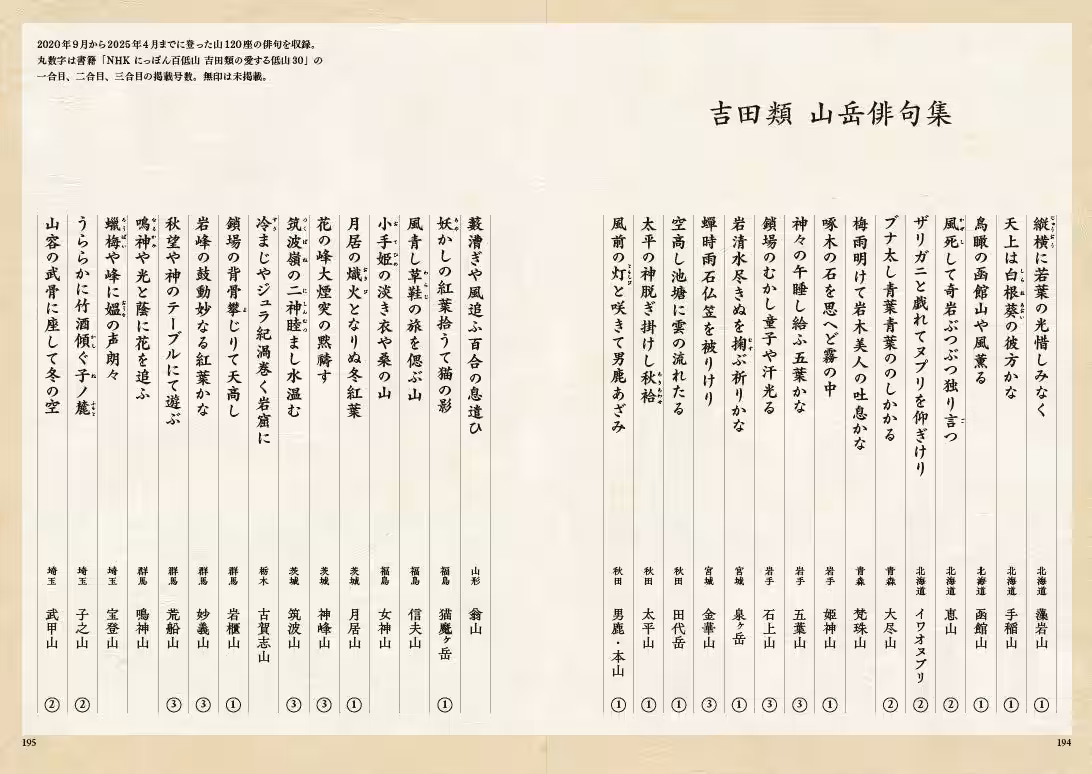 吉田類 山岳俳句集
縦横に若葉の光惜しみなく 北海道 藻岩山 ①
天上は白根葵の彼方かな 北海道 手稲山 ①
鳥瞰の函館山や風薫る 北海道 函館山 ①
風死して奇岩ぶつぶつ独り言つ 北海道 恵山 ②
ザリガニと戯れてヌプリを仰ぎけり 北海道 イワオヌプリ ②
ブナ太し青葉青葉ののしかかる 青森 大尽山 ②
梅雨明けて岩木美人の吐息かな 青森 梵珠山
啄木の石を思へど霧の中 岩手 姫神山 ①
神々の午睡し給ふ五葉かな 岩手 五葉山 ③
鎖場のむかし童子や汗光る 岩手 石上山 ③
岩清水尽きぬを掬ぶ祈りかな 宮城 泉ヶ岳 ①
蟬時雨石仏笠を被りけり 宮城 金華山 ③
空高し池塘に雲の流れたる 秋田 田代岳 ①
太平の神脱ぎ掛けし秋袷 秋田 太平山 ①
風前の灯と咲きて男鹿あざみ 秋田 男鹿・本山 ①
194
2020年9月から2025年4月までに登った山120座の俳句を収録。
丸数字は書籍「NHK にっぽん百低山 吉田類の愛する低山30」の
一合目、二合目、三合目の掲載号数。無印は未掲載。
藪漕ぎや風追ふ百合の息遣ひ 山形 翁山
妖かしの紅葉拾うて猫の影 福島 猫魔ヶ岳 ①
風青し草鞋の旅を偲ぶ山 福島 信夫山
小手姫の淡き衣や桑の山 福島 女神山
月居の熾火となりぬ冬紅葉 茨城 月居山 ①
花の峰大煙突の黙禱す 茨城 神峰山 ③
筑波嶺の二神睦まし水温む 茨城 筑波山 ③
冷まじやジュラ紀渦巻く岩窟に 栃木 古賀志山
鎖場の背骨攀じりて天高し 群馬 岩櫃山 ①
岩峰の鼓動妙なる紅葉かな 群馬 妙義山 ③
秋望や神のテーブルにて遊ぶ 群馬 荒船山 ③
鳴神や光と蔭に花を追ふ 群馬 鳴神山
蠟梅や峰に媼の声朗々 埼玉 宝登山
うららかに竹酒傾ぐ子ノ麓 埼玉 子之山 ②
山容の武骨に座して冬の空 埼玉 武甲山 ②
195